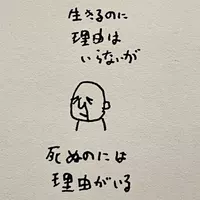 生きるのに
理由は
いらないが
死ぬのには
理由がいる